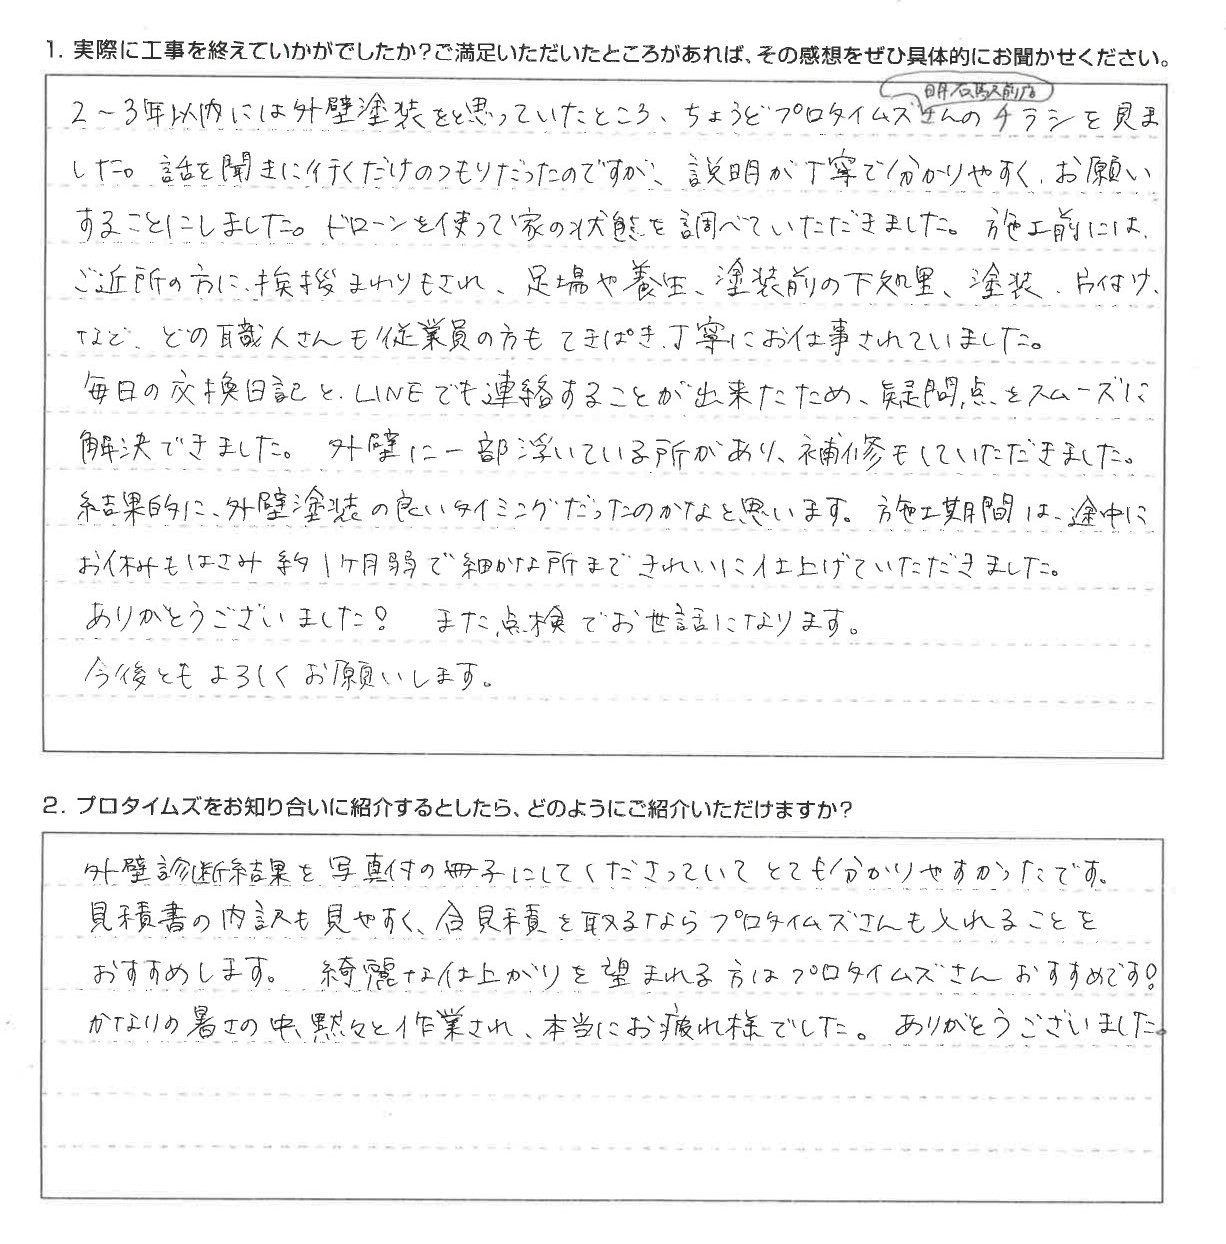 1. 実際に工事を終えていかがでしたか?ご満足いただいたところがあれば、その感想をぜひ具体的にお聞かせください。
明石駅前店
2〜3年以内には外壁塗装をと思っていたところ、ちょうどプロタイムズさんのチラシを見ま
した。話を聞きに行くだけのつもりだったのですが、説明が丁寧で分かりやすく、お願い
することにしました。ドローンを使って家の状態を調べていただきました。施工前には、
ご近所の方に挨拶まわりもされ、足場や養生、塗装前の下処理、塗装、片付け、
など、どの職人さんも従業員の方もてきぱき、丁寧にお仕事されていました。
毎日の交換日記と、LINEでも連絡することが出来たため、疑問点をスムーズに
解決できました。外壁に一部浮いている所があり、補修もしていただきました。
結果的に、外壁塗装の良いタイミングだったのかなと思います。施工期間は、途中に
お休みもはさみ約1ヶ月弱で細かな所まできれいに仕上げていただきました。
ありがとうございました! また点検でお世話になります。
今後ともよろしくお願いします。
2. プロタイムズをお知り合いに紹介するとしたら、どのようにご紹介いただけますか?
外壁診断結果を写真付の冊子にしてくださっていてとても分かりやすかったです。
見積書の内訳も見やすく、合見積を取るならプロタイムズさんも入れることを
おすすめします。綺麗な仕上がりを望まれる方はプロタイムズさんおすすめです!
かなりの暑さの中、黙々と作業され、本当にお疲れ様でした。ありがとうございました。